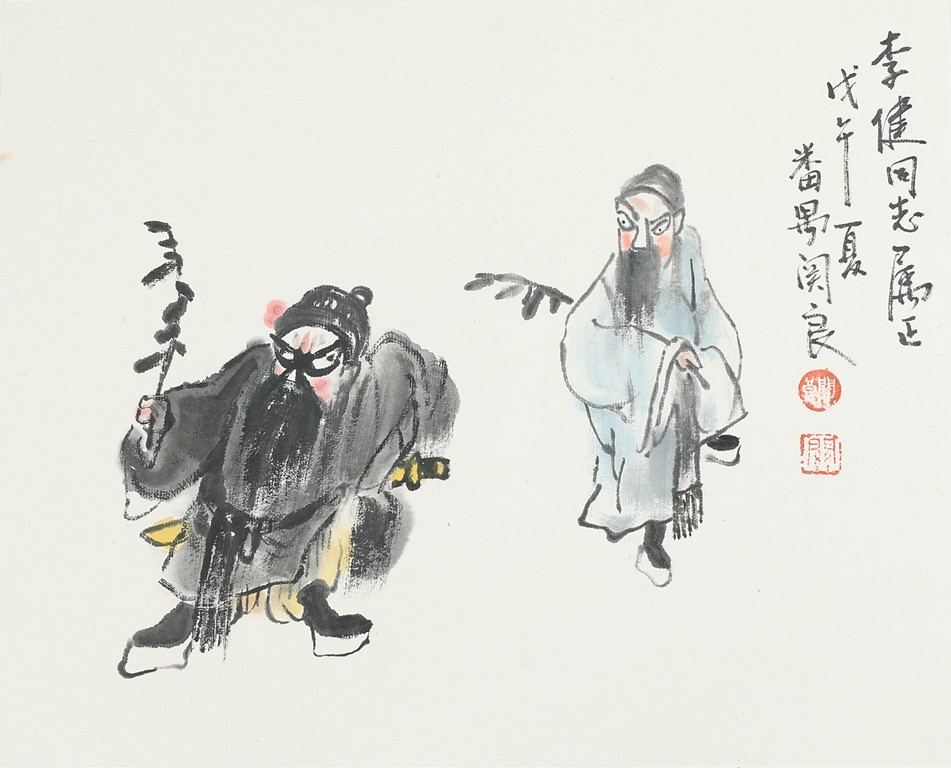 李健同志属正
戊午夏
番禺关良